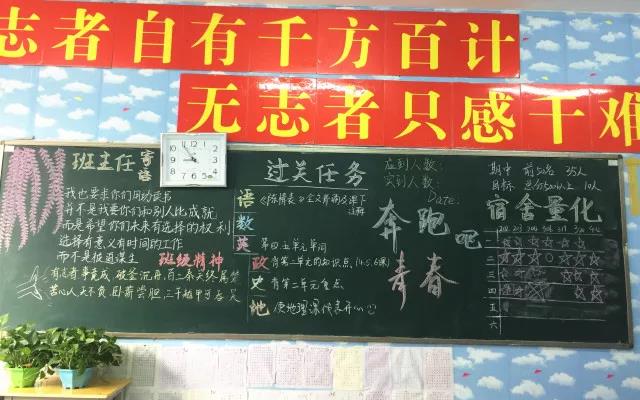 志者自有千方百计
无志者只感千难
班主任寄语
我也要求你们用功读书
并不是我要你们和别人比成就
而是希望你们未来有选择的权利
选择有意义有时间的工作
而不是被迫谋生
班级精神
有志者事竟成,破釜沉舟,百二秦关终属楚
苦心人天不负,卧薪尝胆,三千越甲可吞吴
过关任务
语 《陈情表》全文背诵及课下注释
数
英 第四、五单元单词
政 背第二单元的知识点
史 背第二单元重点
地 使地理课代表开心
应到人数:
实到人数:
Date:
奔跑吧
青春
期中 前50名 35人
目标 总分500以上 10人
宿舍量化
一
二
三
四
五
六